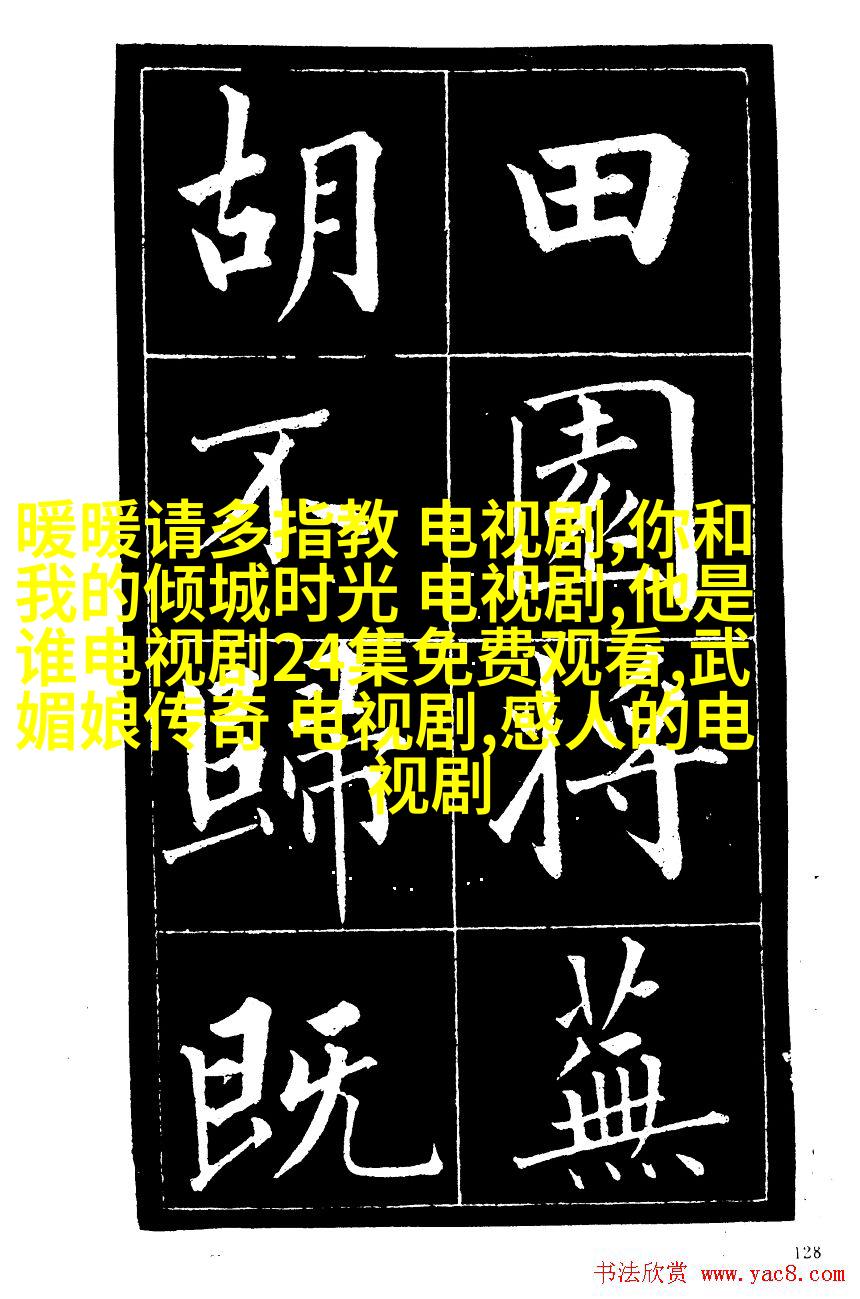 田園将蕪
胡不歸既
暖暖请多指教 电视剧,你和
我的倾城时光 电视剧,他是
谁电视剧24集免费观看,武
媚娘传奇 电视剧,感人的电
视剧
128
书法欣赏 www.yac8.com